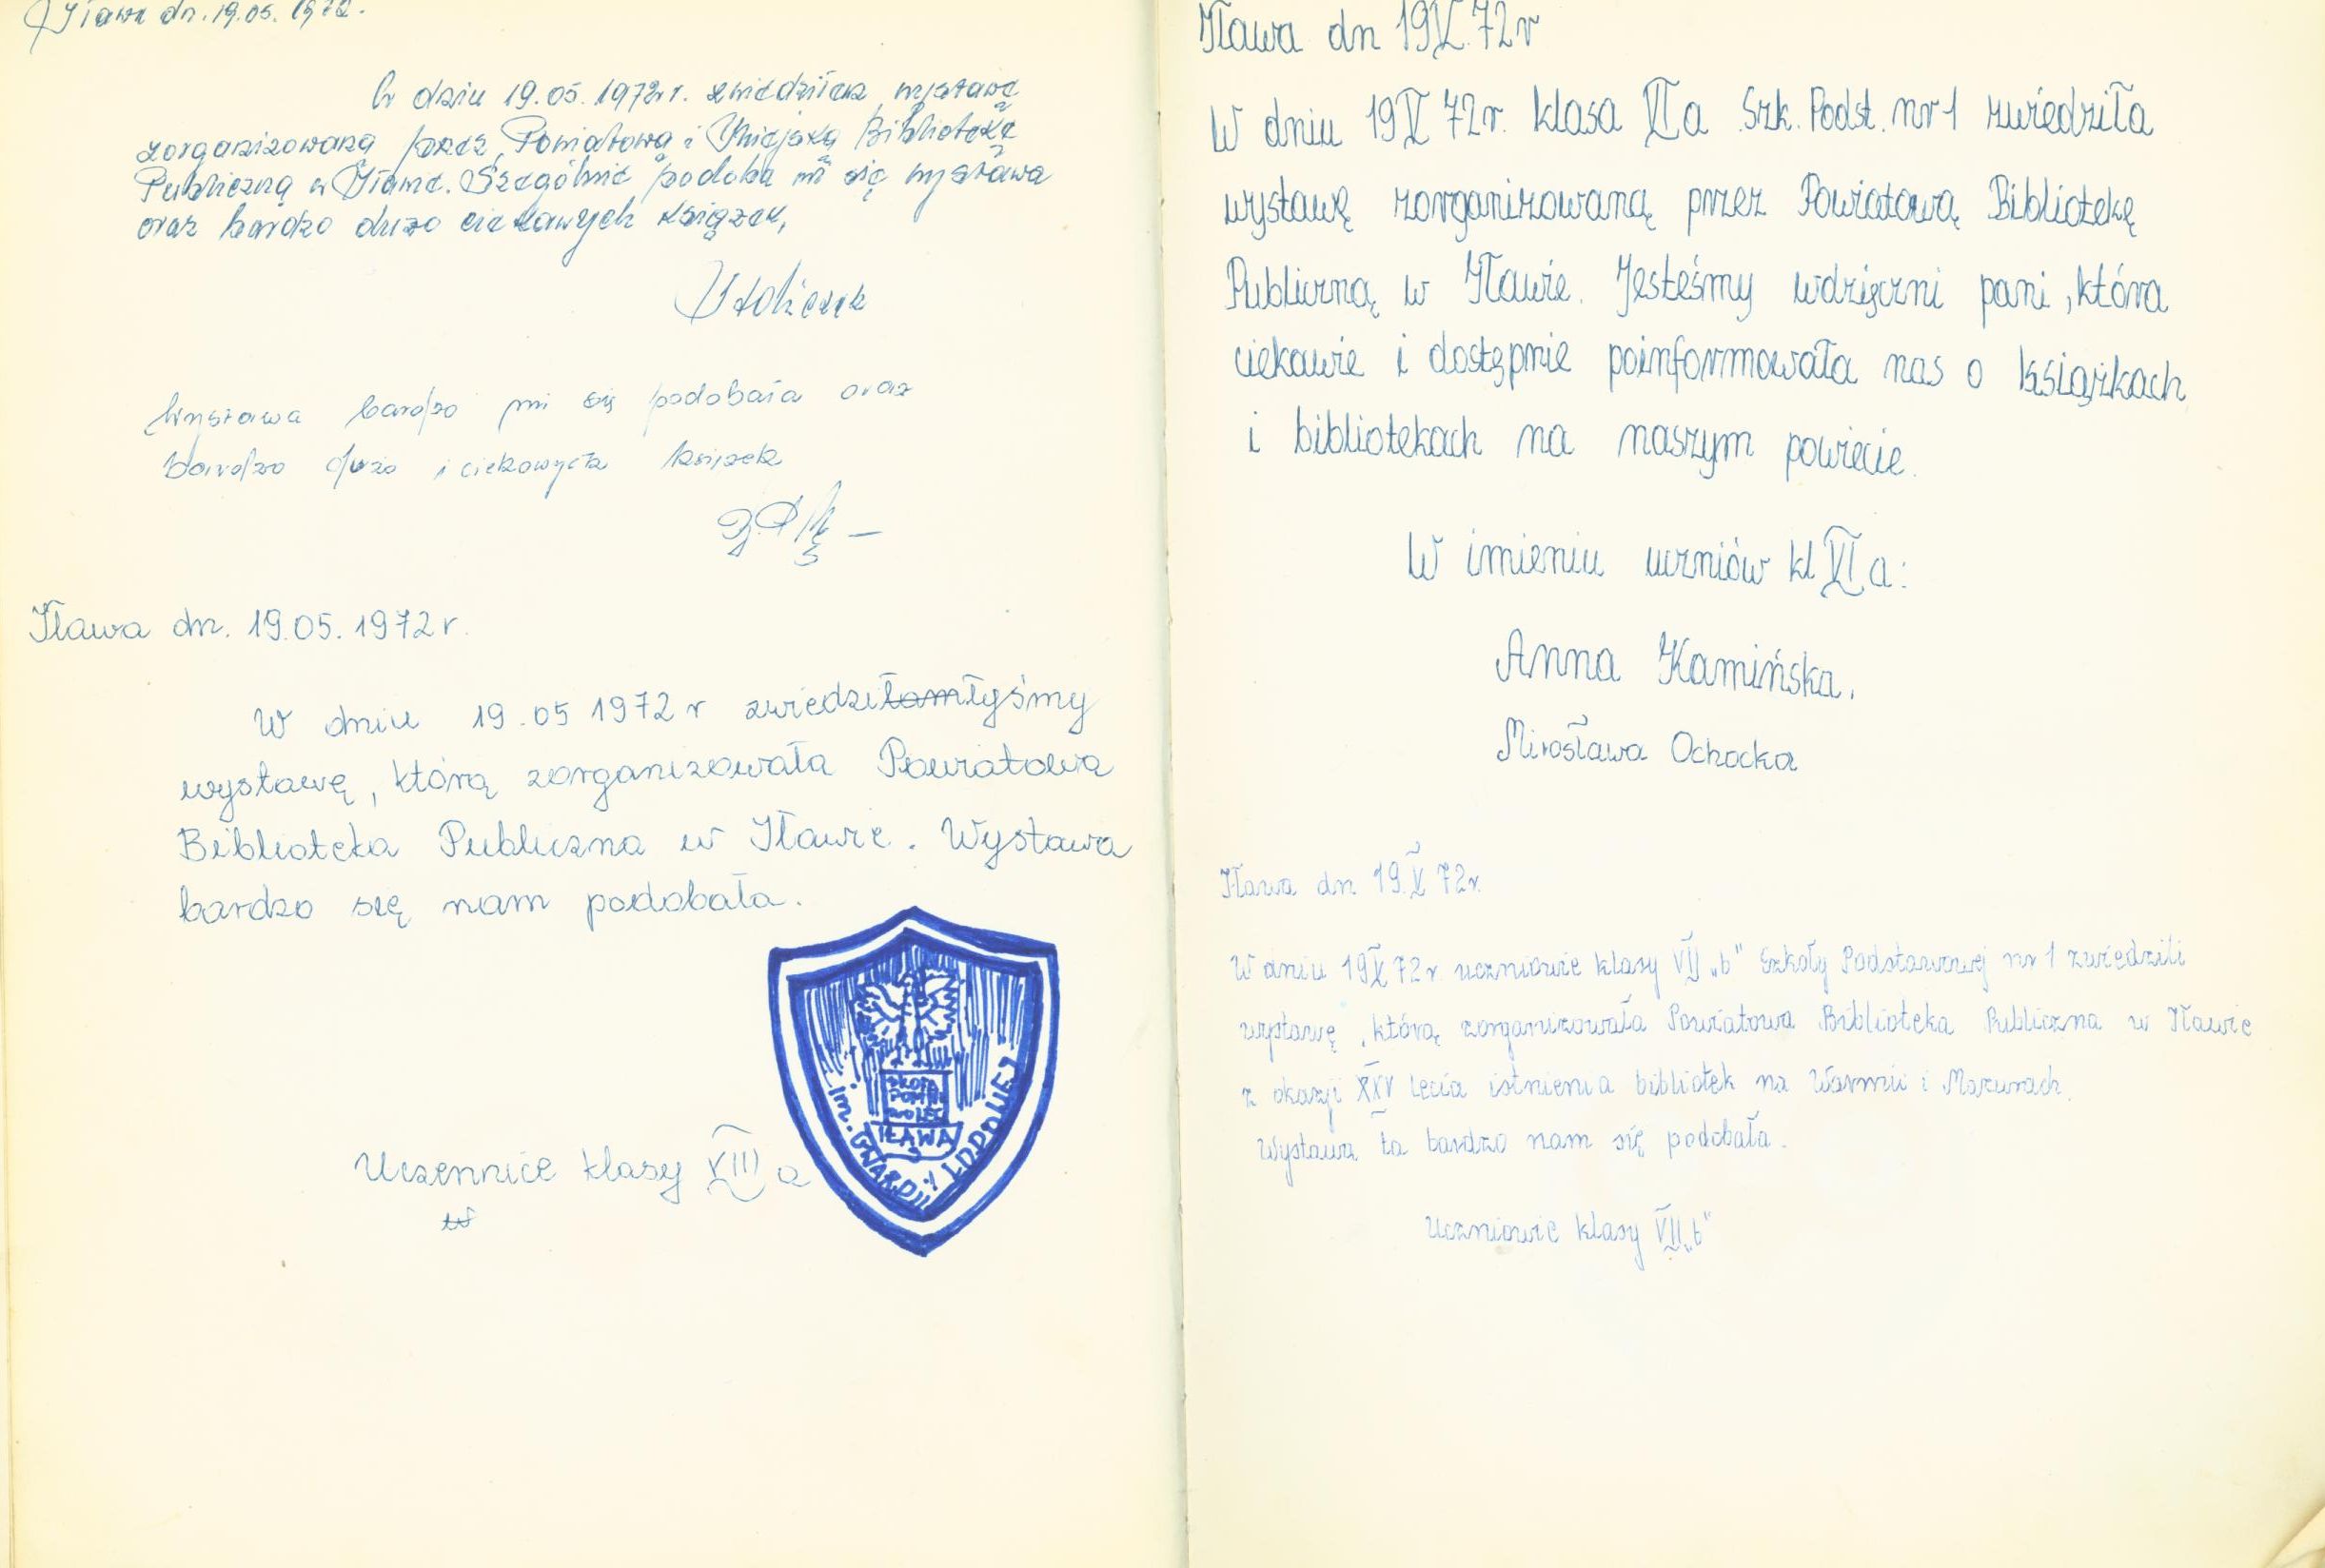 Iława dn. 19.05. 1972.
W dniu 19.05.1972r. zwiedziłem wystawę
zorganizowaną przez Powiatową i Miejską Bibliotekę
Publiczną w Iławie. Szczgólnie podoba mi się wystawa
oraz bardzo dużo ciekawych książek,
Wystawa bardzo mi się podobała oraz
bardzo dużo i ciekawych książek
Iława dn. 19.05.1972 r.
W dniu 19.05 1972 r zwiedziłamłyśmy
wystawę, którą zorganizowała Powiatowa
Biblioteka Publiczna w Iławie. Wystawa
bardzo się nam podobała.
Uczennice klasy VIII a
IŁAWA
im. GWARDII LUDOWEJ
Iława dn 19 V. 72 r
W dniu 19 V 72 r. klasa VI a Szk. Podst. nr 1 zwiedziła
wystawę zorganizowaną przez Powiatową Bibliotekę
Publiczną w Iławie. Jesteśmy wdzięczni pani, która
ciekawie i dostępnie poinformowała nas o książkach
i bibliotekach na naszym powiecie.
W imieniu uczniów kl VI a:
Anna Kamińska.
Mirosława Ochocka
Iława dn 19. V 72 r.
W dniu 19 V 72 r. uczniowie klasy VII „b" Szkoły Podstawowej nr 1 zwiedzili
wystawę, którą zorganizowała Powiatowa Biblioteka Publiczna w Iławie
z okazji XXV lecia istnienia bibliotek na Warmii i Mazurach.
Wystawa ta bardzo nam się podobała.
Uczniowie klasy VII „b"